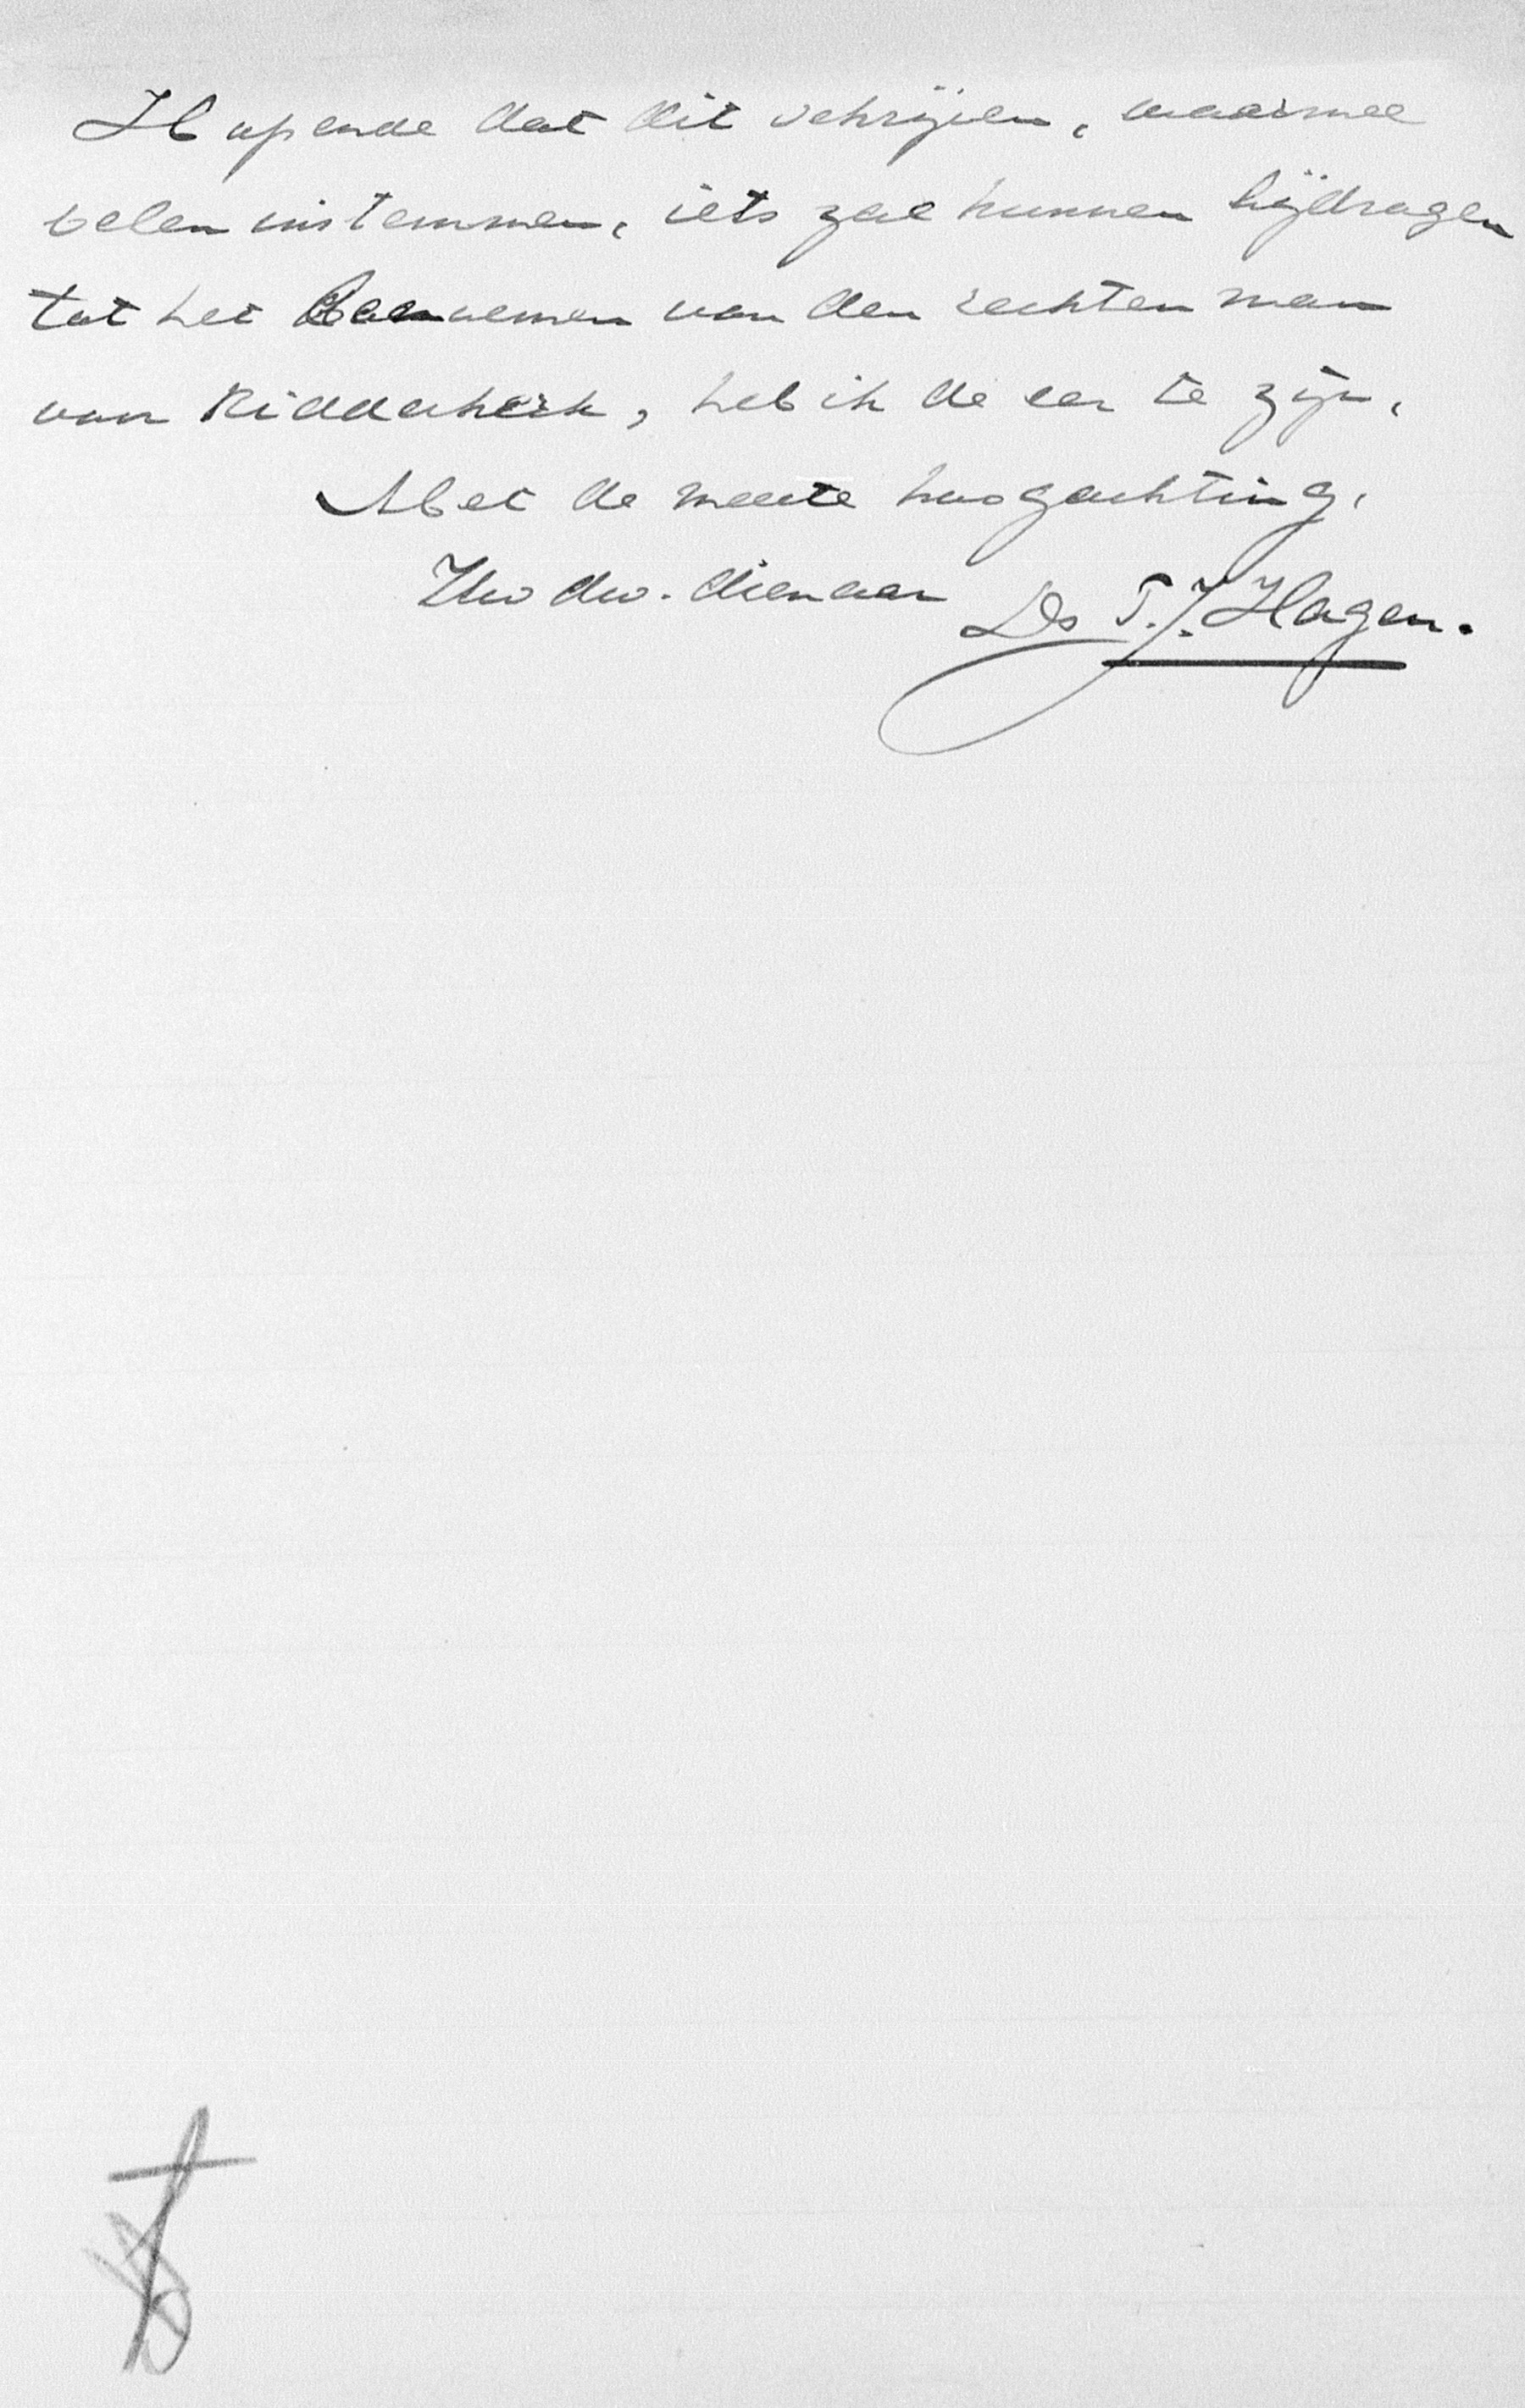 Hopende dat dit schrijven, waarmee
velen instemmen, iets zal kunnen bijdragen
tot het benoemen van den rechten man
van Ridderkerk, heb ik de eer te zijn,
Met de meeste hoogachting,
Uw dw. dienaar Ds T. J. Hagen.